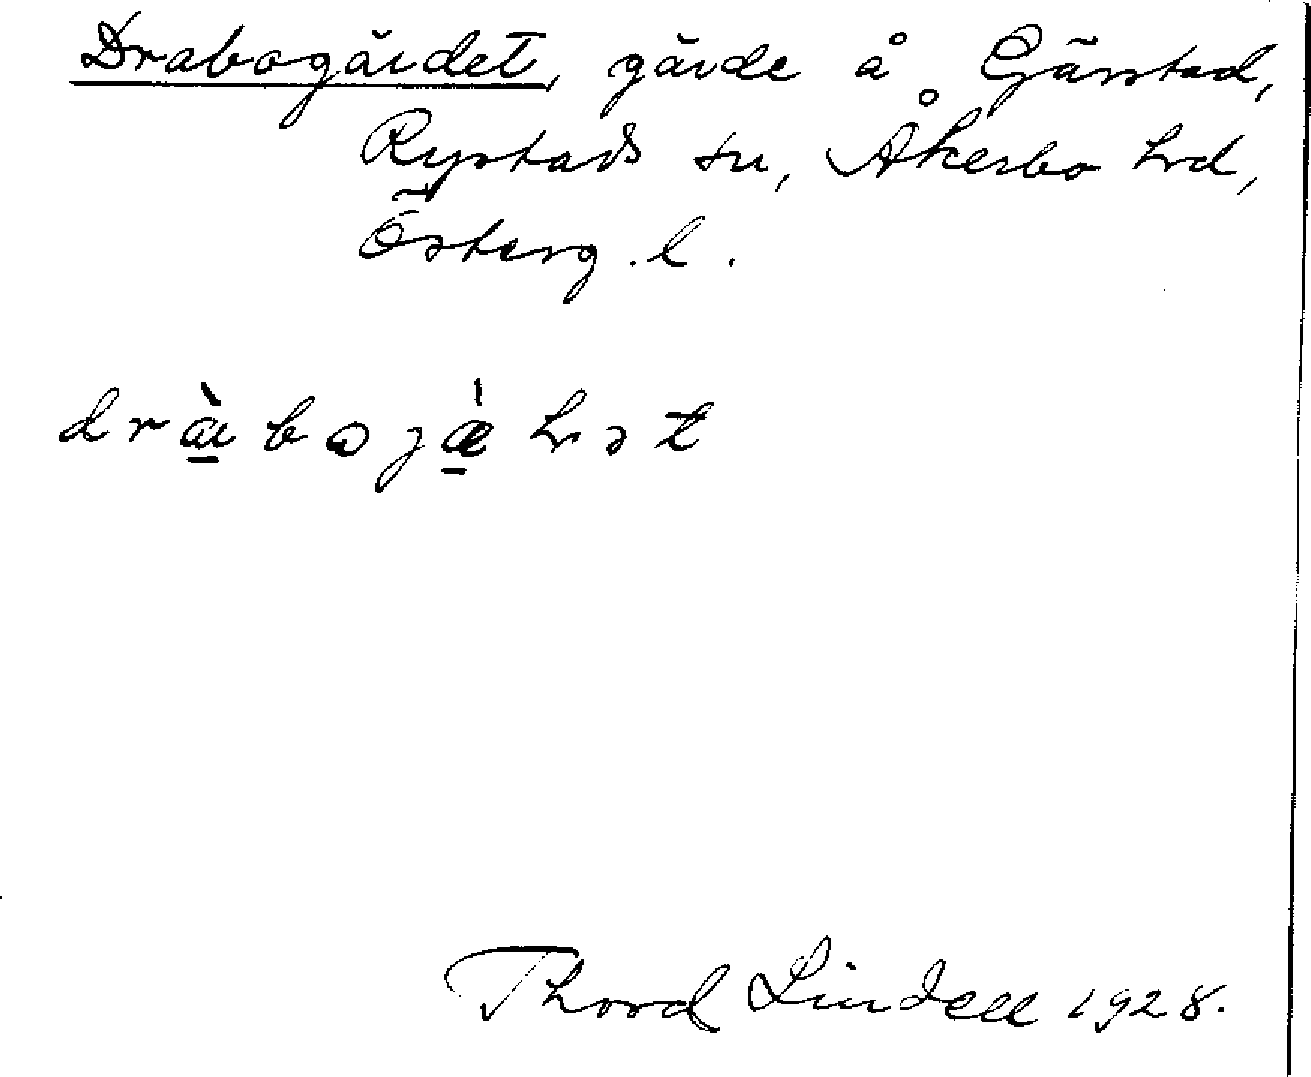 Drabogärdet, gärde å Gärstad,
Rystads sn, Åkerbo hd,
Österg. l.
Thord Lindell 1928.